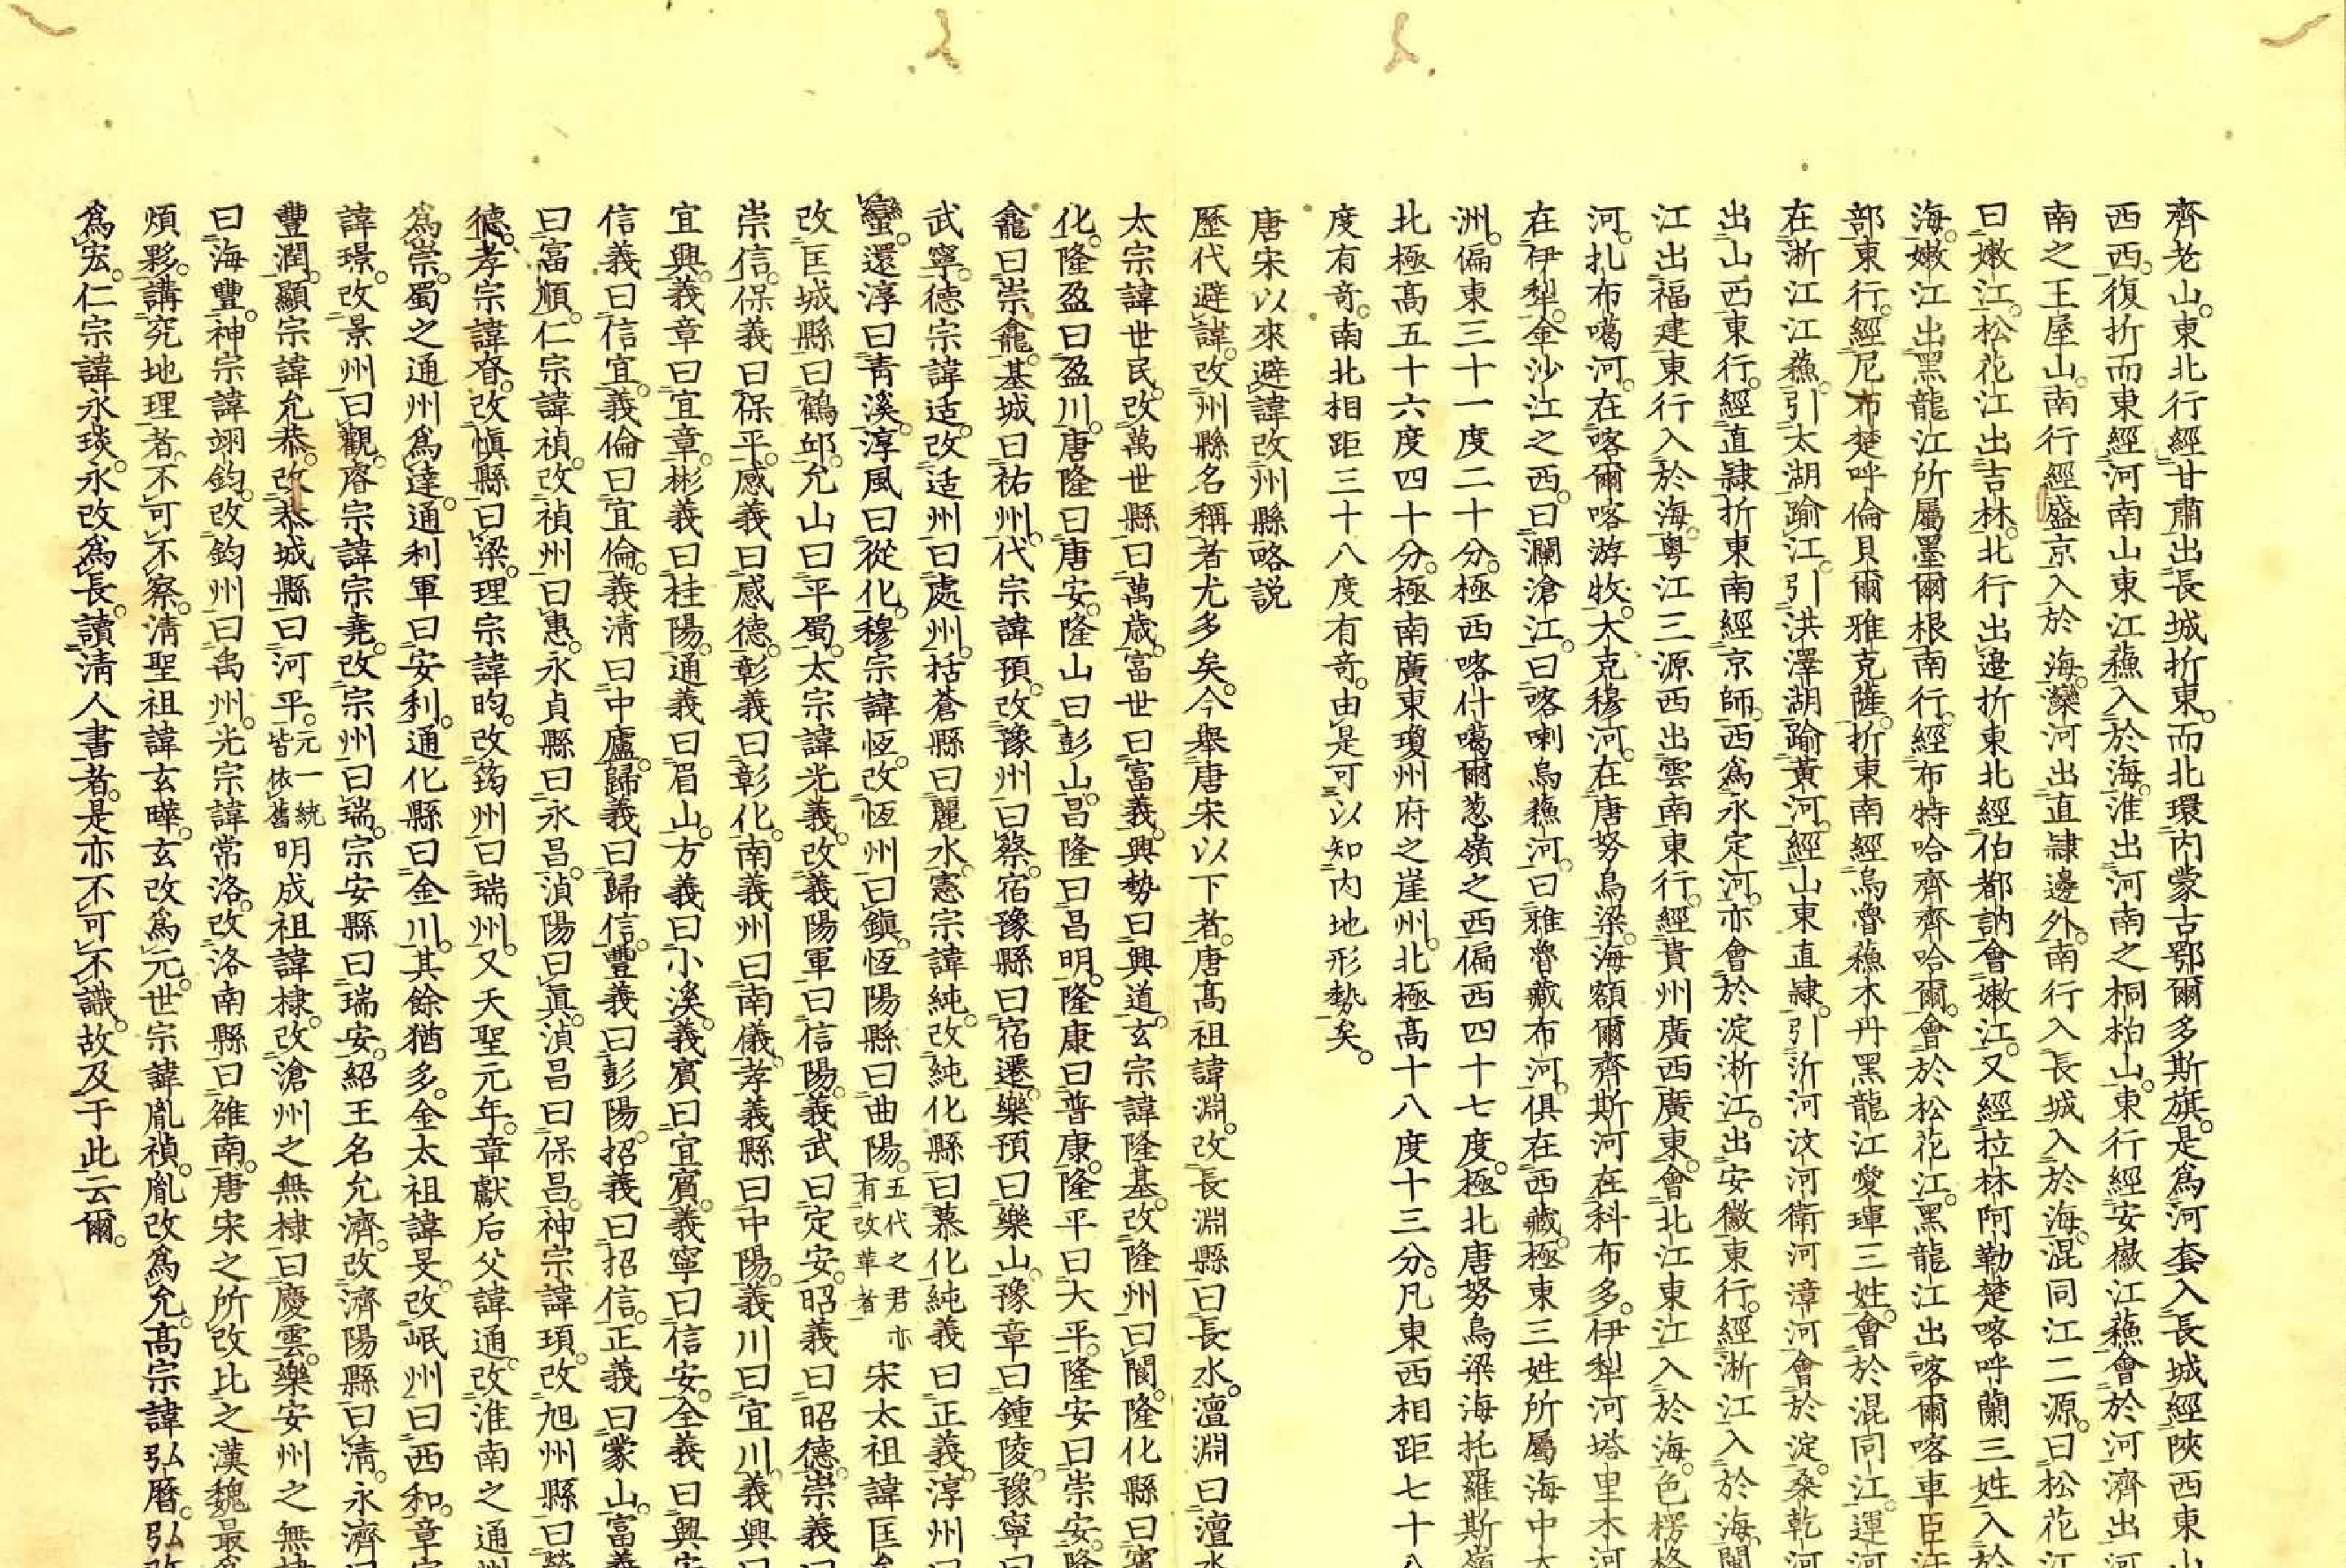 齊老山。東北行經甘肅出長城折東。而北環內蒙古鄂爾多斯旗。是爲河套入長城經陜西東山
西西。復折而東經河南山東江蘓入於海。淮出河南之桐柏山。東行經安徽江蘓會於河濟出河
南之王屋山。南行經盛京入於海。灤河出直隷邊外。南行入長城入於海。混同江二源。曰松花江
曰嫩江。松花江出吉林。北行出邊折東北經伯都訥會嫩江。又經拉林阿勒楚喀呼蘭三姓入於
海。嫩江出黑龍江所屬墨爾根南行。經布特哈齊齊哈爾。會於松花江。黑龍江出喀爾喀車臣汗
部東行。經尼布楚呼倫貝爾雅克薩。折東南經烏魯蘓木丹黑龍江愛琿三姓。會於混同江。運河
在浙江江蘓。引太湖踰江。引洪澤湖踰黃河。經山東直隷。引沂河汶河衛河漳河會於淀。桑乾河
出山西東行。經直隷折東南經京師。西爲永定河。亦會於淀浙江。出安徽東行。經浙江入於海。閩
江出福建東行入於海。粵江三源西出雲南東行。經貴州廣西廣東。會北江東江入於海。色楞格
河。扎布噶河。在喀爾喀游牧。大克穆河。在唐努烏梁。海額爾齊斯河在科布多。伊犁河塔里木河
在伊犁。金沙江之西。曰瀾滄江。曰喀喇烏蘓河。曰雅魯藏布河。俱在西藏。極東三姓所屬海中大
洲。偏東三十一度二十分。極西喀什噶爾葱嶺之西偏西四十七度。極北唐努烏梁海托羅斯嶺
北極高五十六度四十分。極南廣東瓊州府之崖州。北極高十八度十三分。凡東西相距七十八
度有奇。南北相距三十八度有奇。由是可以知內地形勢矣。
唐宋以來避諱改州縣略説
歷代避諱。改州縣名稱者尤多矣。今舉唐宋以下者。唐高祖諱淵。改長淵縣曰長水。澶淵曰澶水
太宗諱世民。改萬世縣曰萬歲。富世曰富義。興勢曰興道。玄宗諱隆基。改隆州曰閬。隆化縣曰賓
化。隆盈曰盈川。唐隆曰唐安。隆山曰彭山。昌隆曰昌明。隆康曰普康。隆平曰大平。隆安曰崇安。隆
龕曰崇龕。基城曰祐州。代宗諱預。改豫州曰蔡。宿豫縣曰宿遷。樂預曰樂山。豫章曰鍾陵。豫寧曰
武寧。德宗諱适。改适州曰處州。括蒼縣曰麗水。憲宗諱純。改純化縣曰慕化純義曰正義。淳州曰
蠻。還淳曰青溪。淳風曰從化。穆宗諱恆。改恆州曰鎭。恆陽縣曰曲陽。五代之君亦有改革者宋太祖諱匡
改匡城縣曰鶴邱。允山曰平蜀。太宗諱光義。改義陽軍曰信陽。義武曰定安。昭義曰昭德。崇義曰
崇信。保義曰保平。感義曰感德。彰義曰彰化。南義州曰南儀。孝義縣曰中陽。義川曰宜川。義興曰
宜興。義章曰宜章。彬義曰桂陽。通義曰眉山。方義曰小溪。義賓曰宜賓。義寧曰信安。全義曰興安
信義曰信宜。義倫曰宜倫。義清曰中廬。歸義曰歸信。豐義曰彭陽。招義曰招信。正義曰蒙山。富義
曰富順。仁宗諱禎。改禎州曰惠。永貞縣曰永昌。湞陽曰眞。湞昌曰保昌。神宗諱頊。改旭州縣曰榮
德。孝宗諱眘。改愼縣曰梁。理宗諱昀。改筠州曰瑞州。又天聖元年。章獻后父諱通。改淮南之通州
爲崇。蜀之通州爲達。通利軍曰安利。通化縣曰金川。其餘猶多。金太祖諱旻。改岷州曰西和。章宗
諱璟。改景州曰觀。睿宗諱宗堯。改宗州曰瑞。宗安縣曰瑞安。紹王名允濟。改濟陽縣曰清。永濟曰
豐潤。顯宗諱允恭。改恭城縣曰河平。元一統皆依舊明成祖諱棣。改滄州之無棣曰慶雲。樂安州之無棣
曰海豐。神宗諱翊鈞。改鈞州曰禹州。光宗諱常洛。改洛南縣曰雒南。唐宋之所改比之漢魏最爲
煩夥。講究地理者。不可不察。清聖祖諱玄曄。玄改爲元。世宗諱胤禎。胤改爲允。高宗諱弘曆。弘改
爲宏。仁宗諱永琰。永改爲長。讀清人書者。是亦不可不識。故及于此云爾。